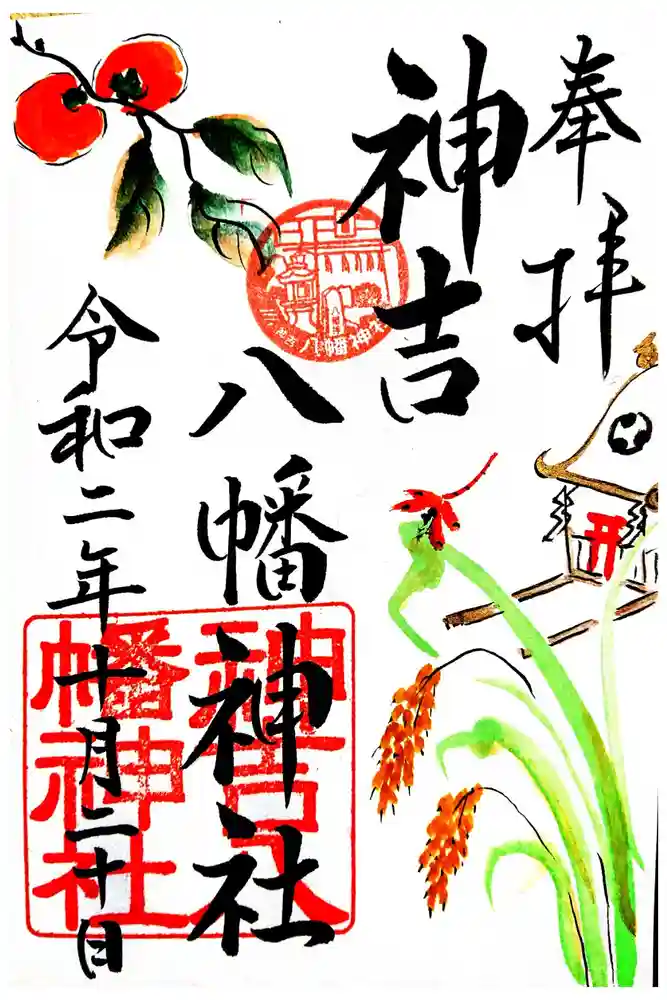 奉拝
神吉
八幡神社
令和二年十月二十日
神吉八
幡神社
八幡神社